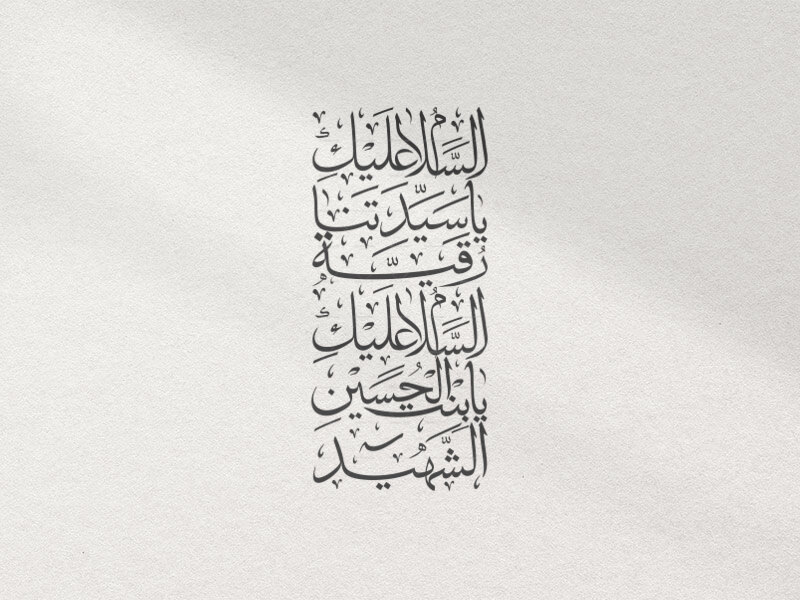 السلام عليك
يا سيدتنا
رقية
السلام عليك
يا بنت الحسين
الشهيد